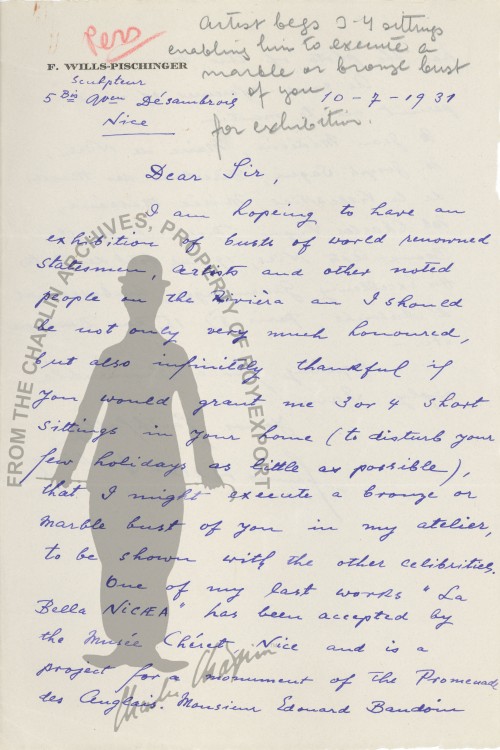 Pers
Artist begs 3-4 sittings
enabling him to execute a
marble or bronze bust
of you
for exhibition.
F. WILLS-PISCHINGER
Sculpteur
5 Bis Aven Désambrois
Nice
10-7-1931
Dear Sir,
I am hopeing to have an
exhibition of busts of world renowned
Statesmen, artists and other noted
people on the Rivièra an I should
be not only very much honoured,
but also infinitely thankful if
you would grant me 3 or 4 short
sittings in your home (to disturb your
few holidays as little as possible),
that I might execute a bronze or
marble bust of you in my atelier,
to be shown with the other celibrities.
One of my last works "La
Bella NICÆA" has been accepted by
the Musée Chéret Nice and is a
project for a monument of the Promenade
des Anglais. Monsieur Edouard Baudoin
FROM THE CHAPLIN ARCHIVES, PROPERTY OF ROY EXPORT
Charles Chaplin